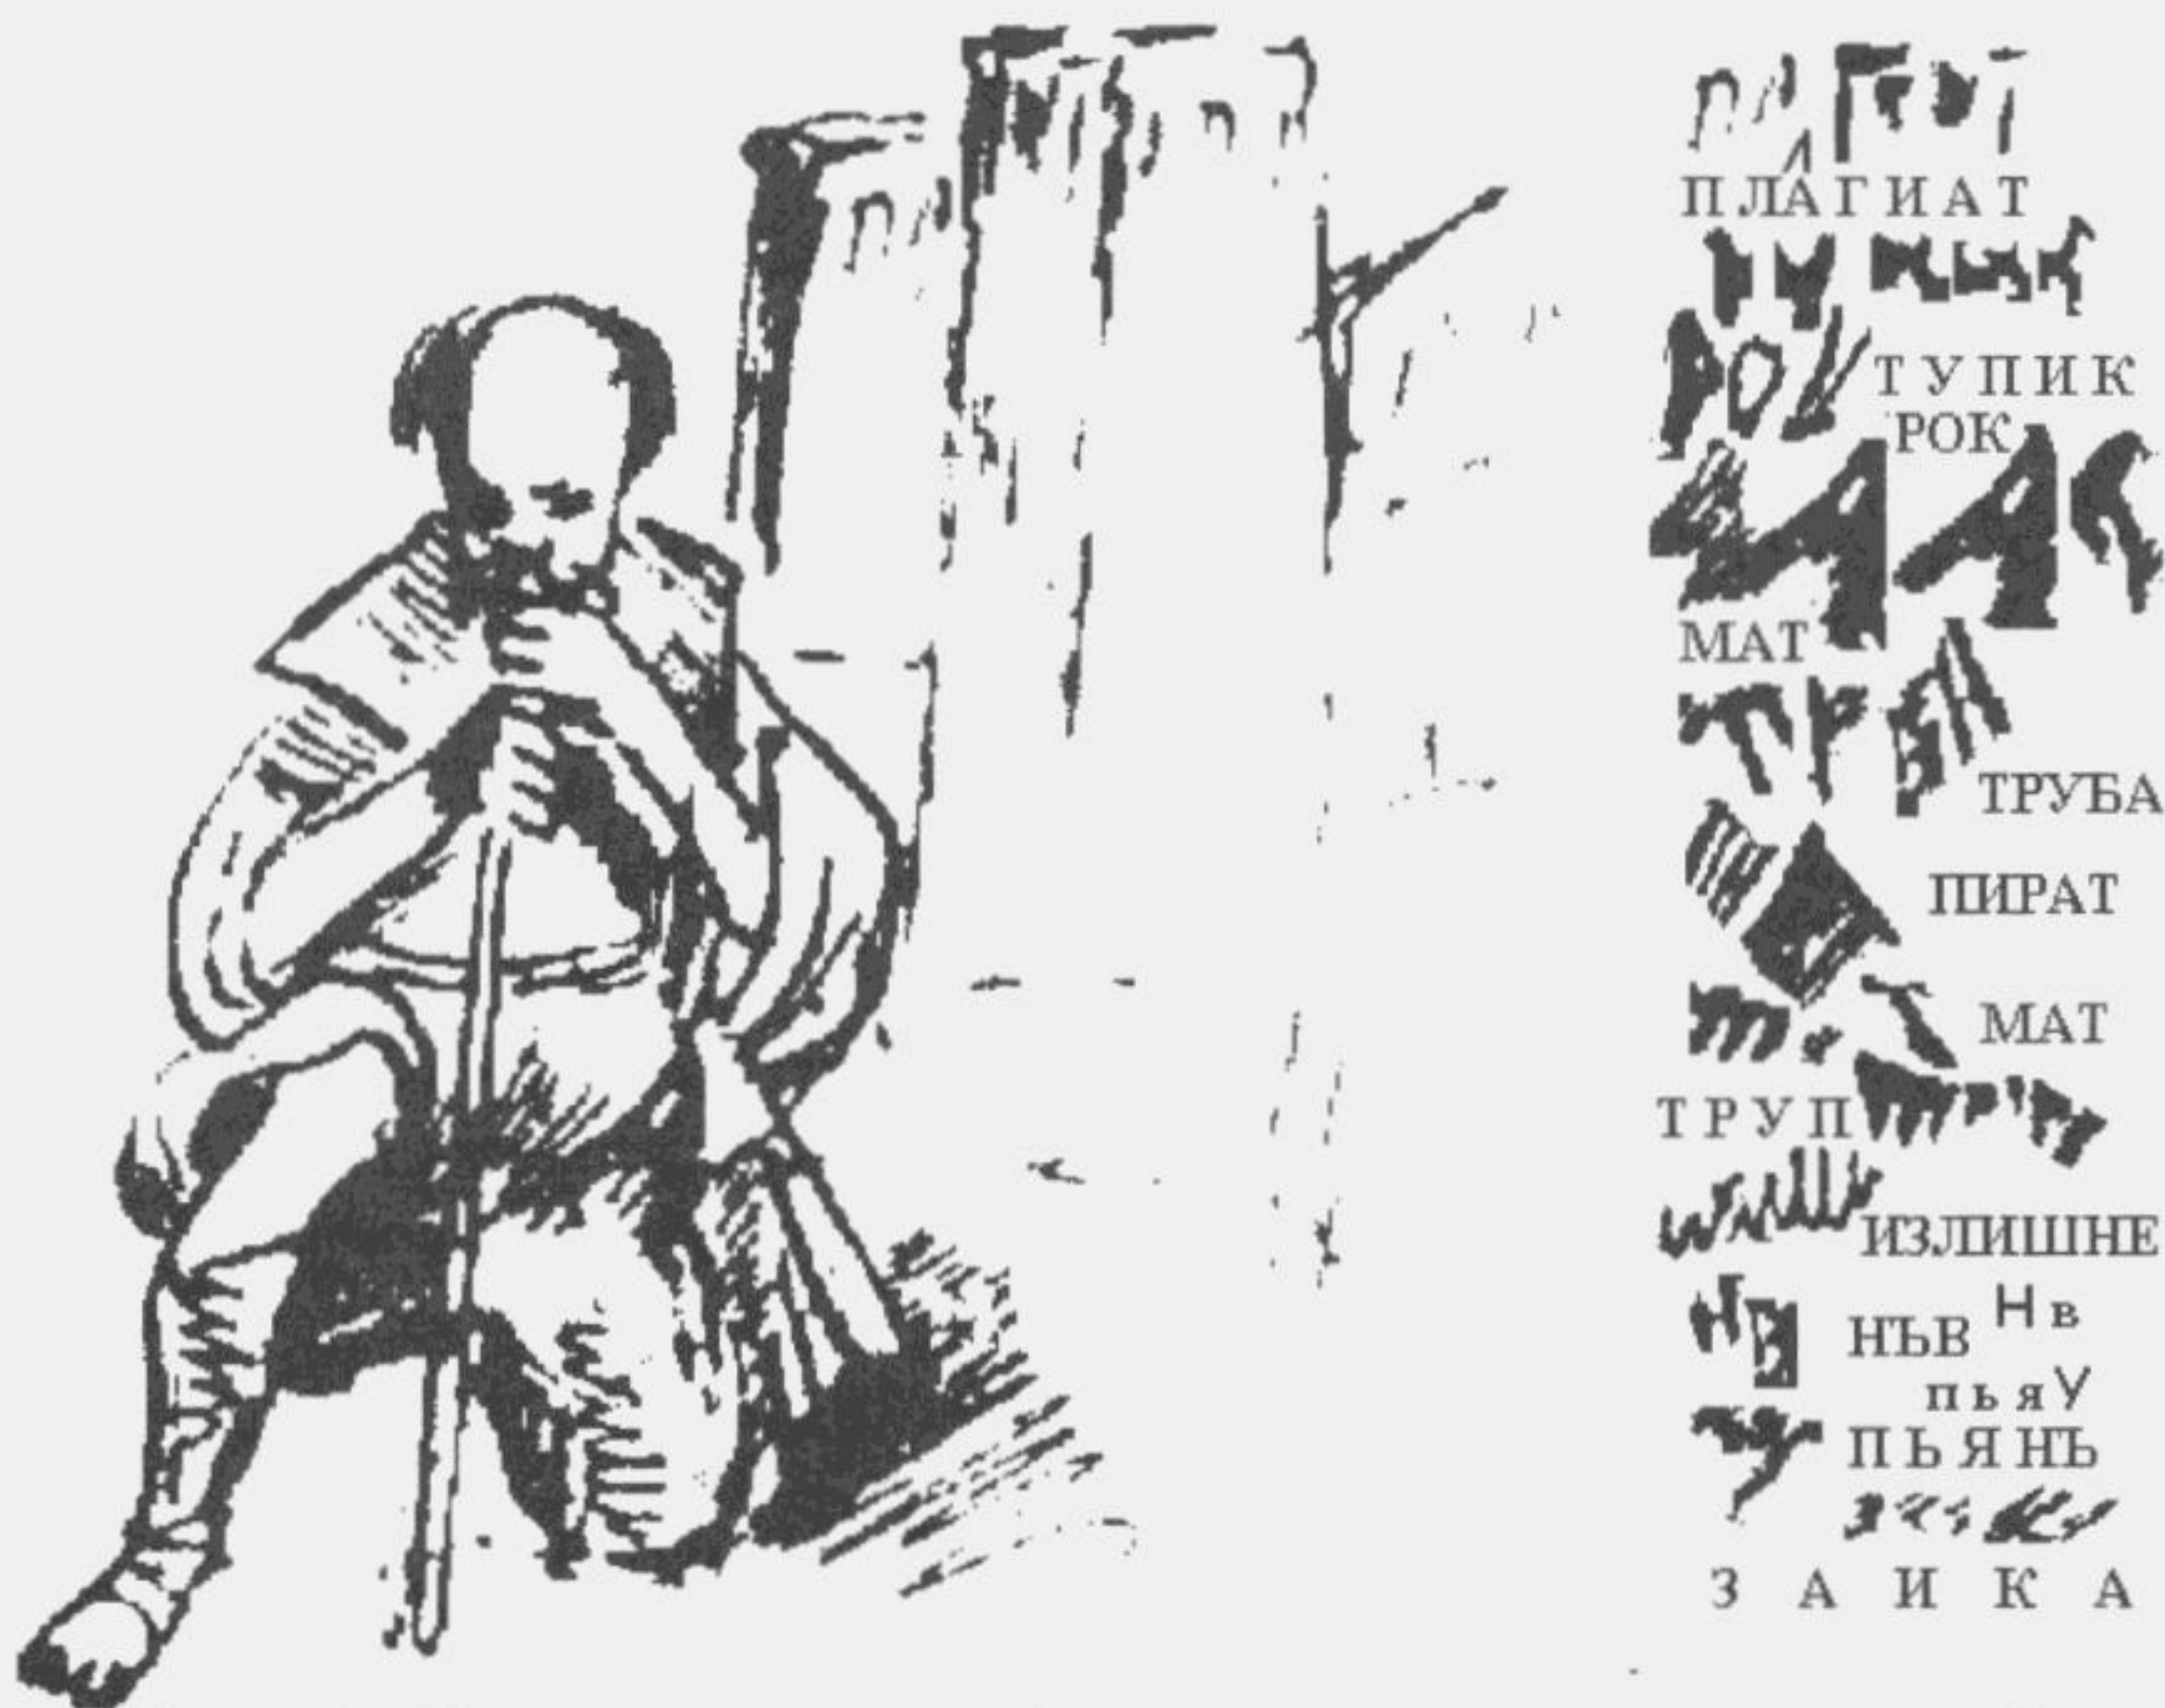 ПЛАГИАТ
ТУПИК
РОК
МАТ
ТРУБА
ПИРАТ
МАТ
ТРУП
ИЗЛИШНЕ
Н в
НЪВ
п ь я У
ПЬЯНЪ
ЗАИКА